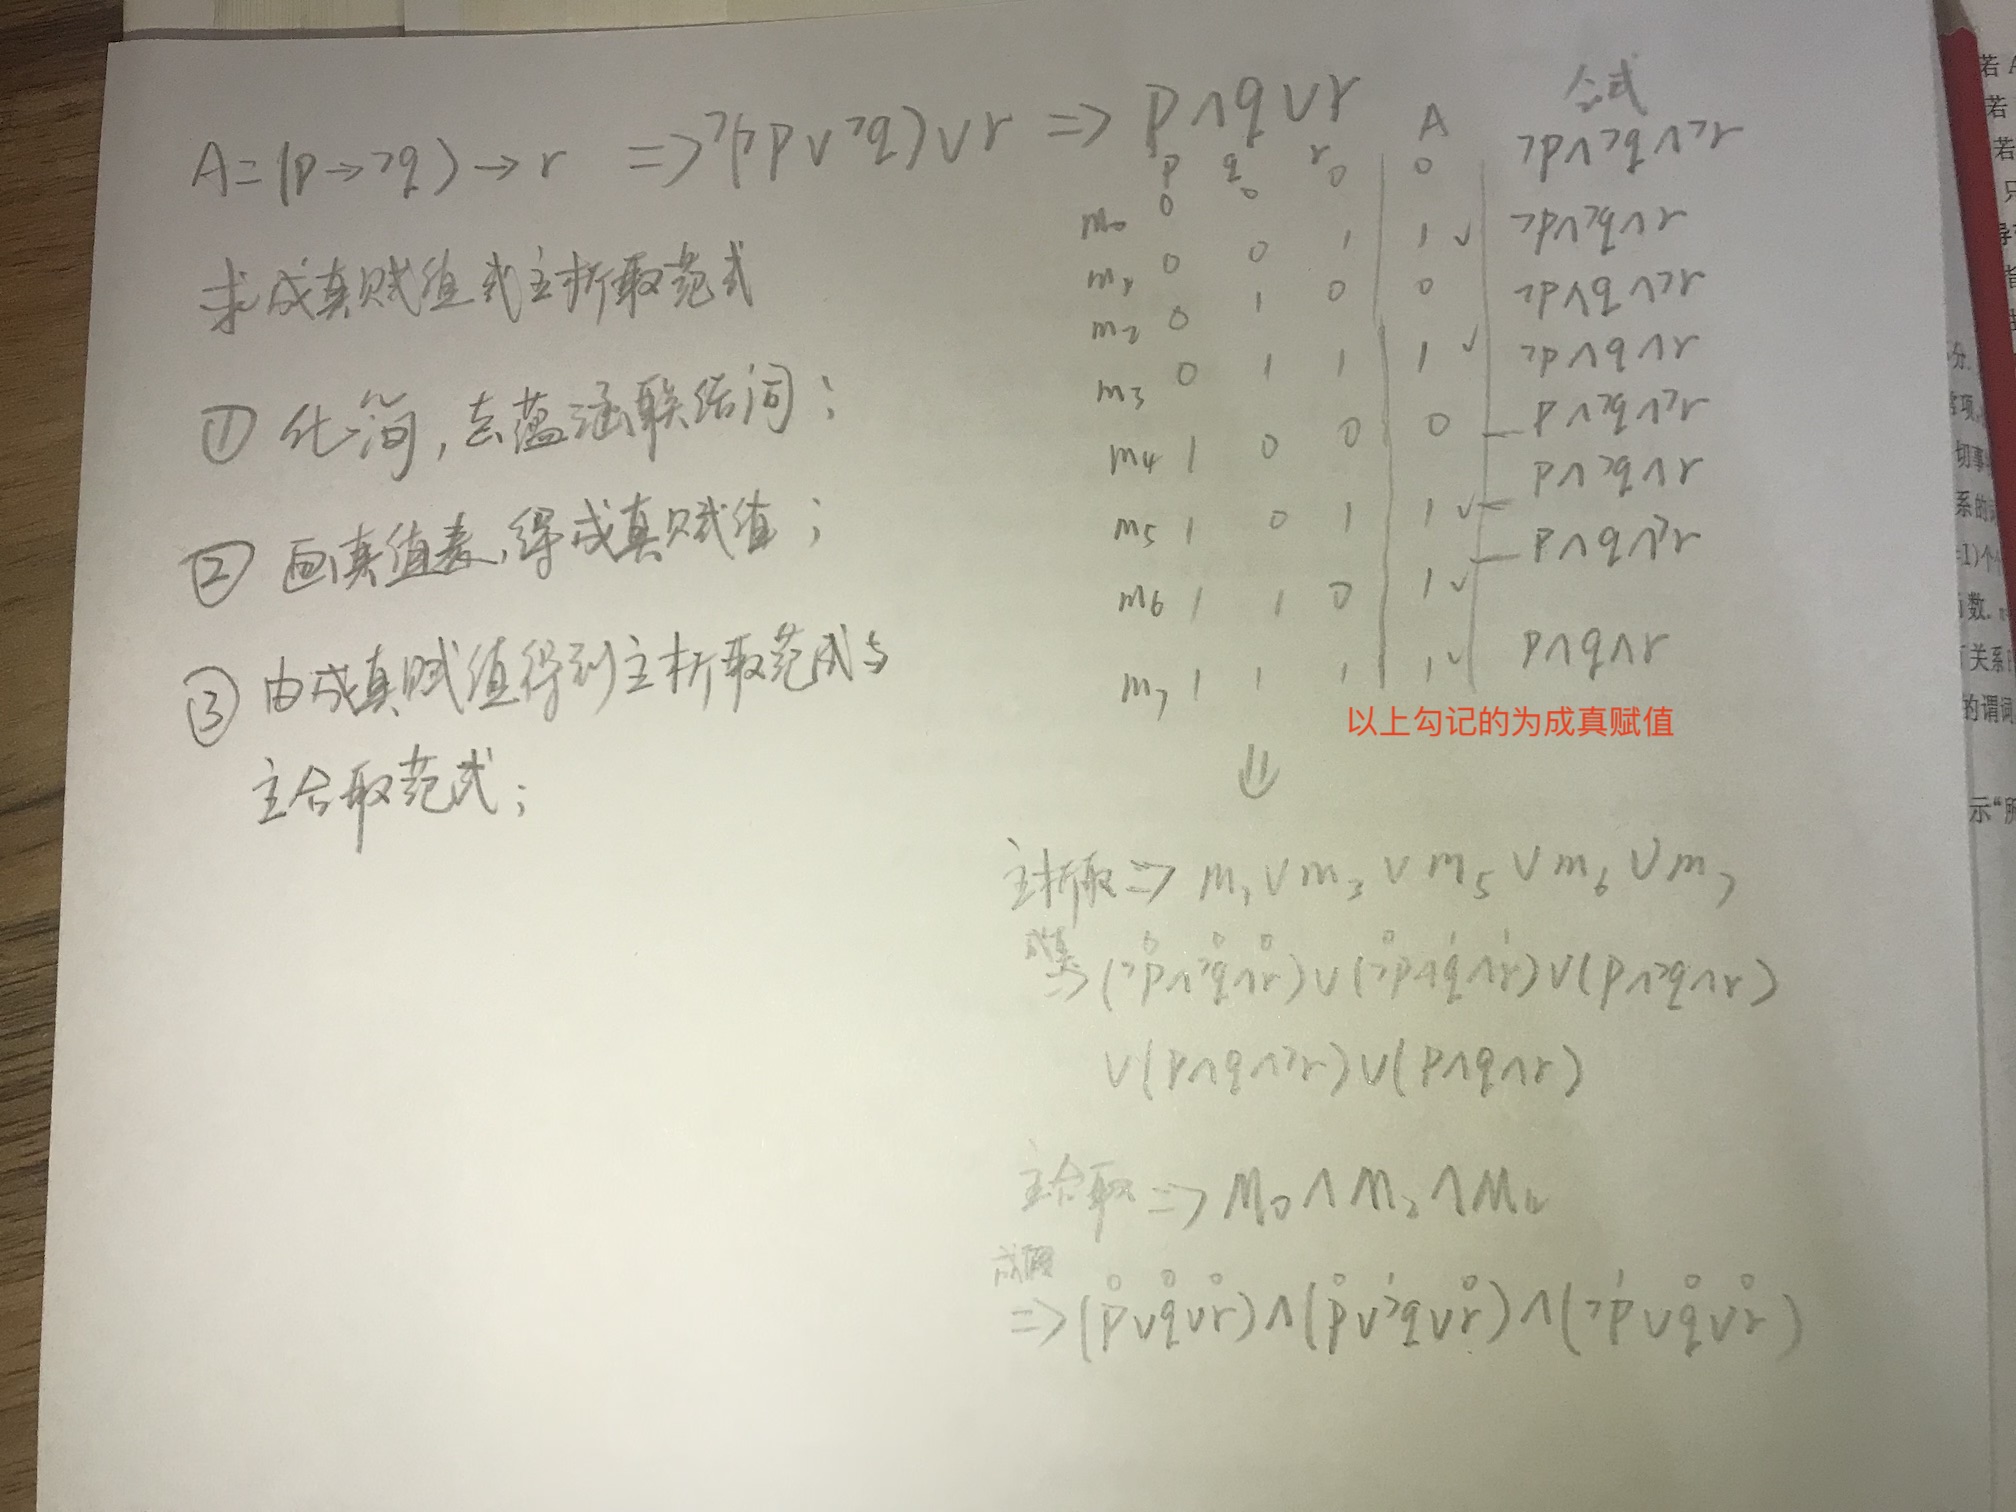 A=(p→¬q)→r ⇒¬(¬p∨¬q)∨r ⇒ p∧q∨r
求成真赋值或主析取范式
① 化简,去蕴涵联结词;
② 画真值表,得成真赋值;
③ 由成真赋值得到主析取范式与
主合取范式;
p q r A 公式
m₀ 0 0 0 0 ¬p∧¬q∧¬r
m₁ 0 0 1 1 ✓ ¬p∧¬q∧r
m₂ 0 1 0 0 ¬p∧q∧¬r
m₃ 0 1 1 1 ✓ ¬p∧q∧r
m₄ 1 0 0 0 p∧¬q∧¬r
m₅ 1 0 1 1 ✓ p∧¬q∧r
m₆ 1 1 0 1 ✓ p∧q∧¬r
m₇ 1 1 1 1 ✓ p∧q∧r
以上勾记的为成真赋值
⇓
主析取⇒ m₁∨m₃∨m₅∨m₆∨m₇
成真 0 0 0 0 1 1
⇒(¬p∧¬q∧r)∨(¬p∧q∧r)∨(p∧¬q∧r)
∨(p∧q∧¬r)∨(p∧q∧r)
主合取⇒M₀∧M₂∧M₄
成假 0 0 0 0 1 0 1 0 0
⇒(p∨q∨r)∧(p∨¬q∨r)∧(¬p∨q∨r)
若
若
若
只
分.
切事
系的
=1)个
数.
关系
的谓词
示“所